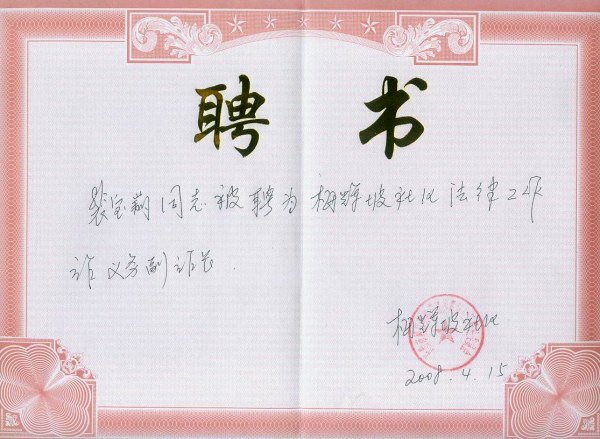 聘书
裴宝莉同志被聘为栅辉坡社区法律工作
站义务副站长.
栅辉坡社区
2008.4.15